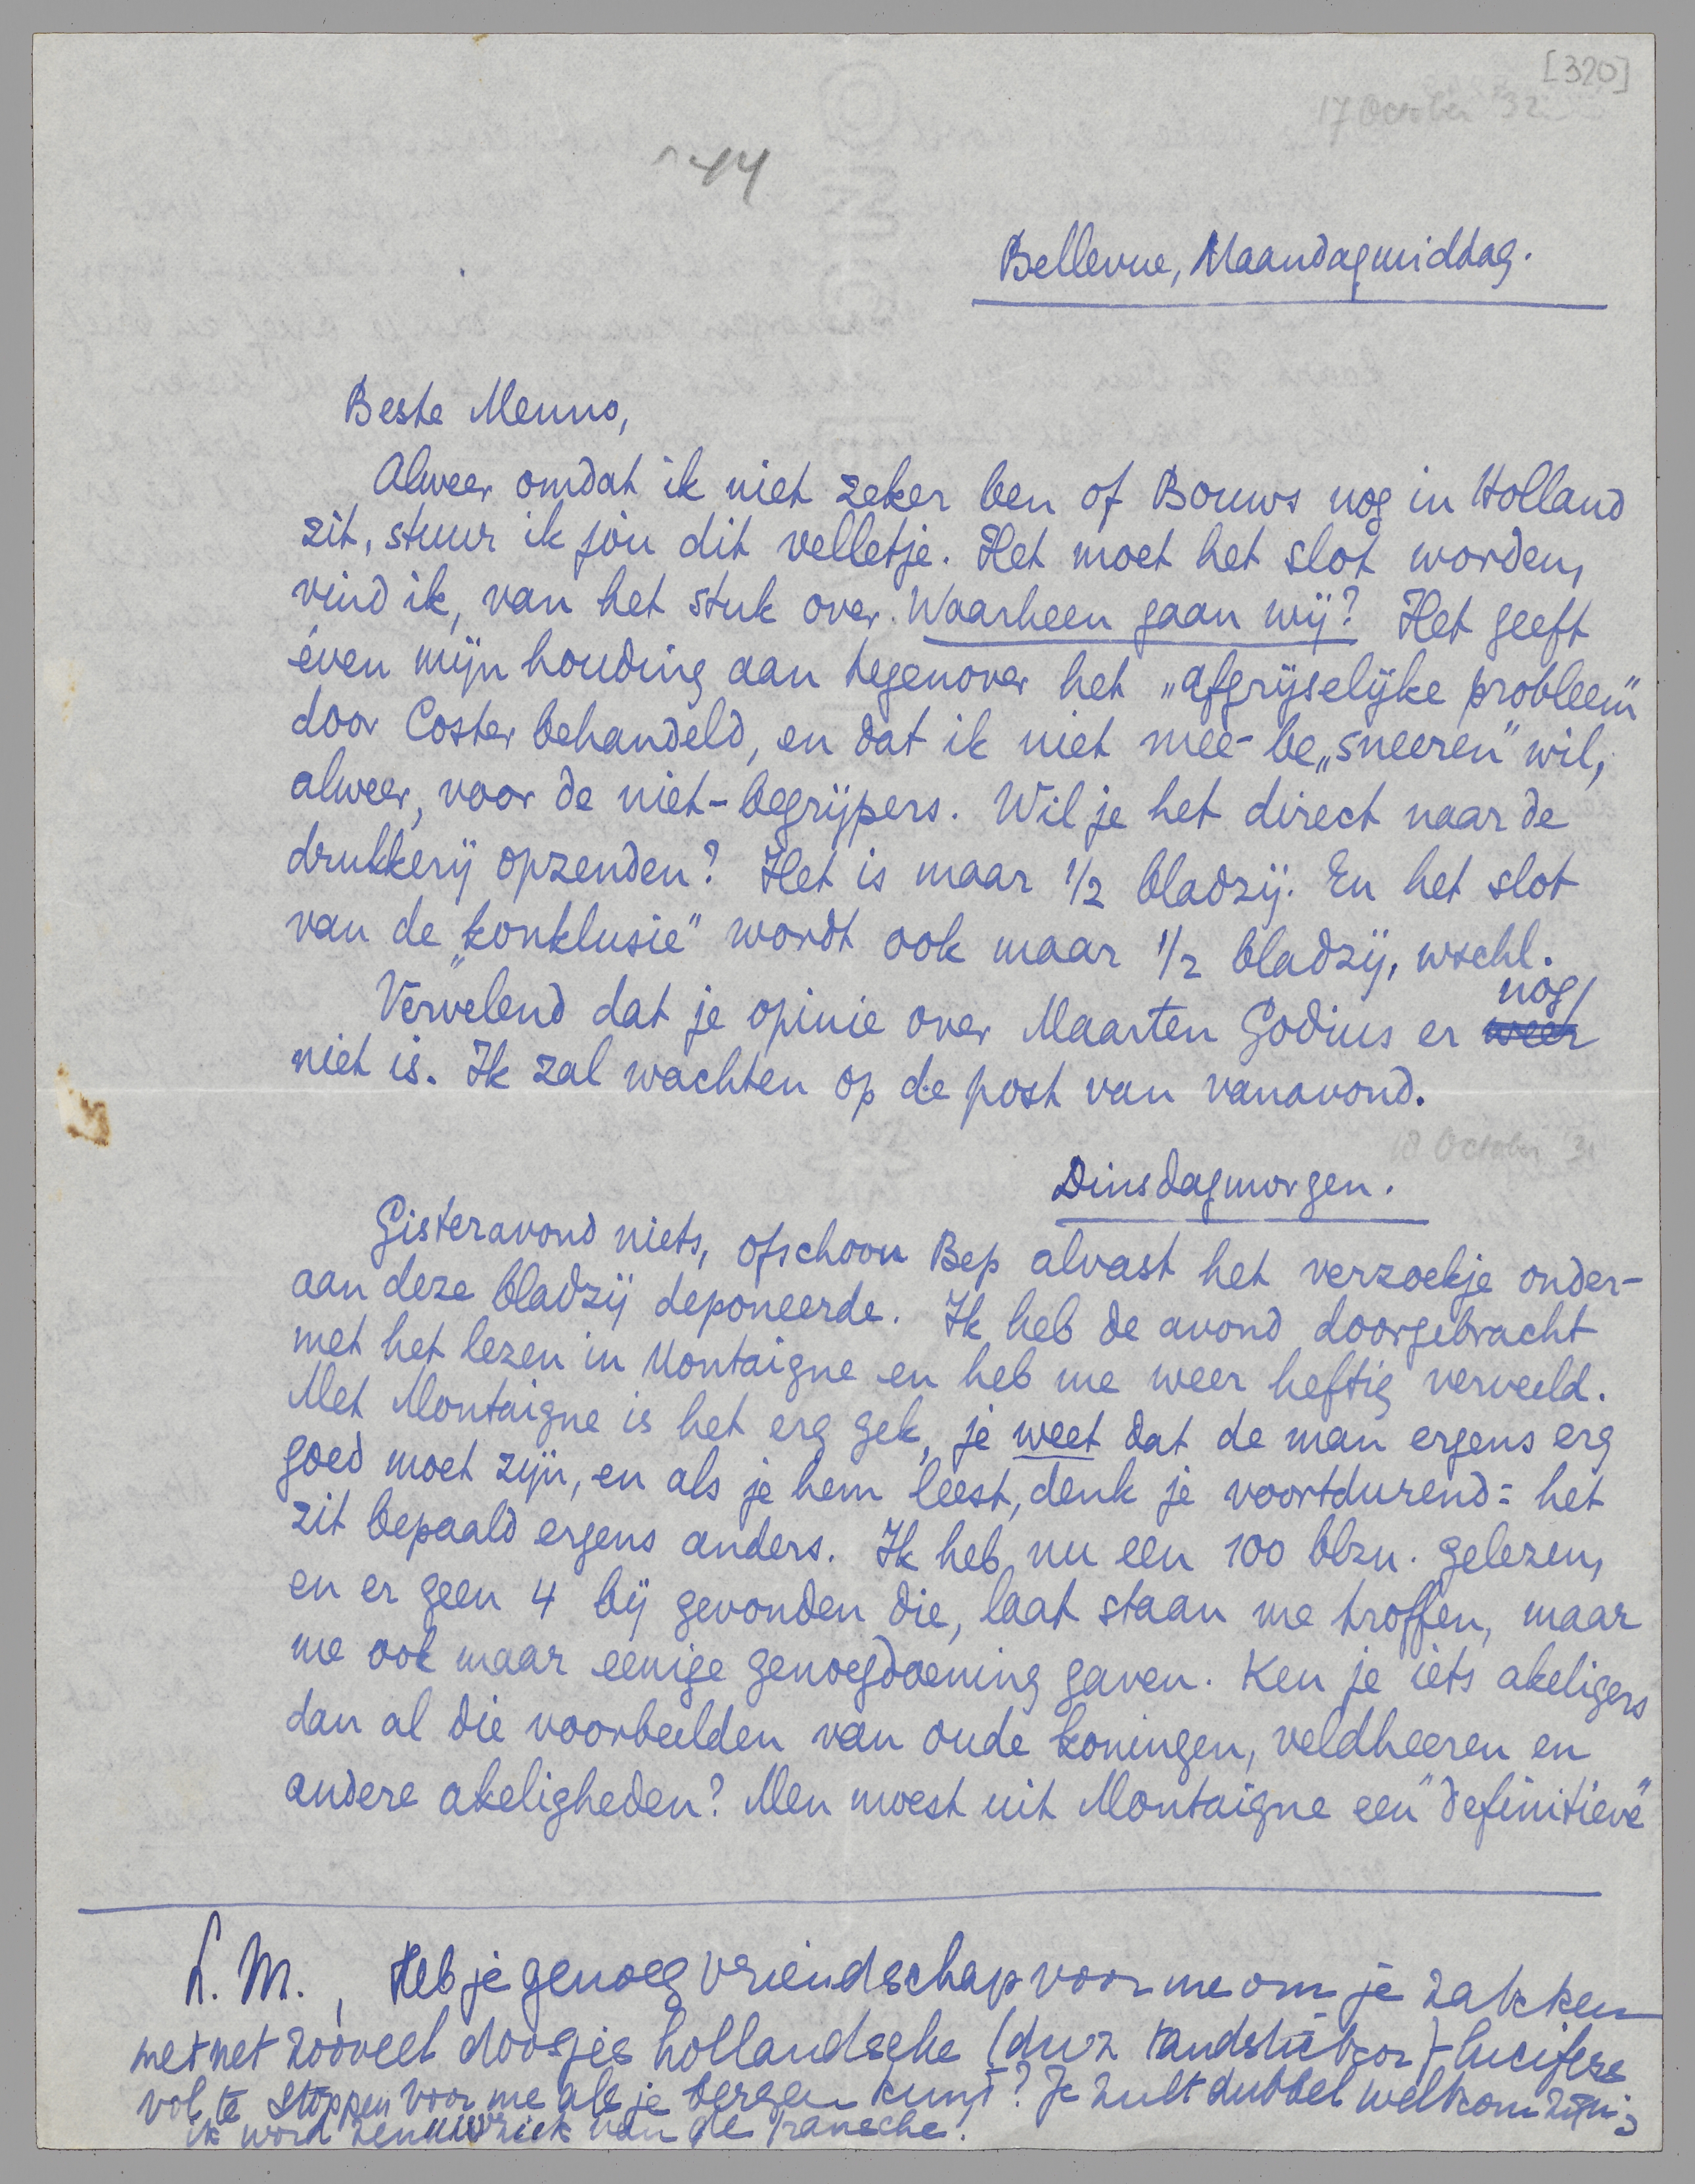 [320]
17 October '32
44
Bellevue, Maandagmiddag.
Beste Menno,
Alweer omdat ik niet zeker ben of Bouws nog in Holland
zit, stuur ik jòu dit velletje. Het moet het slot worden,
vind ik, van het stuk over Waarheen gaan wij? Het geeft
éven mijn houding aan tegenover het „afgrijselijke probleem"
door Coster behandeld, en dat ik niet mee-be„sneeren" wil,
alweer, voor de niet-begrijpers. Wil je het direct naar de
drukkerij opzenden? Het is maar 1/2 bladzij. En het slot
van de „konklusie" wordt ook maar 1/2 bladzij, wschl.
Vervelend dat je opinie over Maarten Godius er weer nog
niet is. Ik zal wachten op de post van vanavond.
18 October '3
Dinsdagmorgen.
Gisteravond niets, ofschoon Bep alvast het verzoekje onder-
aan deze bladzij deponeerde. Ik heb de avond doorgebracht
met het lezen in Montaigne en heb me weer heftig verveeld.
Met Montaigne is het erg gek, je weet dat de man ergens erg
goed moet zijn, en als je hem leest, denk je voortdurend: het
zit bepaald ergens anders. Ik heb nu een 100 blzn. gelezen,
en er geen 4 bij gevonden die, laat staan me troffen, maar
me ook maar eenige genoegdoening gaven. Ken je iets akeligers
dan al die voorbeelden van oude koningen, veldheeren en
andere akeligheden? Men moest uit Montaigne een "definitieve"
L. M., Heb je genoeg vriendschap voor me om je zakken
met net zooveel doosjes hollandsche lucifers
vol te stoppen voor me als je bergen kunt? Je zult dubbel welkom zijn;
ik word zenuwziek van de fransche.